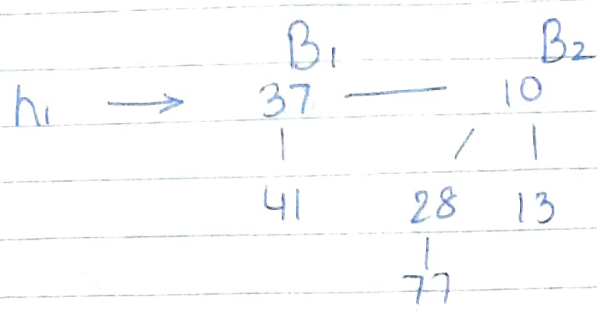 B₁ B₂
h₁ → 37 — 10
41 28 13
77